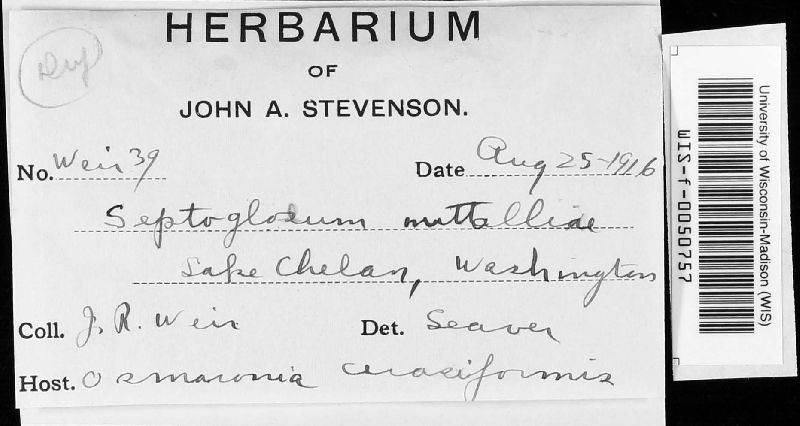 HERBARIUM
OF
JOHN A. STEVENSON.
Dup
No. Weir 39
Date Aug 25-1916
Septogloeum nuttalliae
Lake Chelan, Washington
Coll. J. R. Weir
Det. Seaver
Host. Osmaronia cerasiformis
University of Wisconsin-Madison (WIS)
WIS-f-0050757